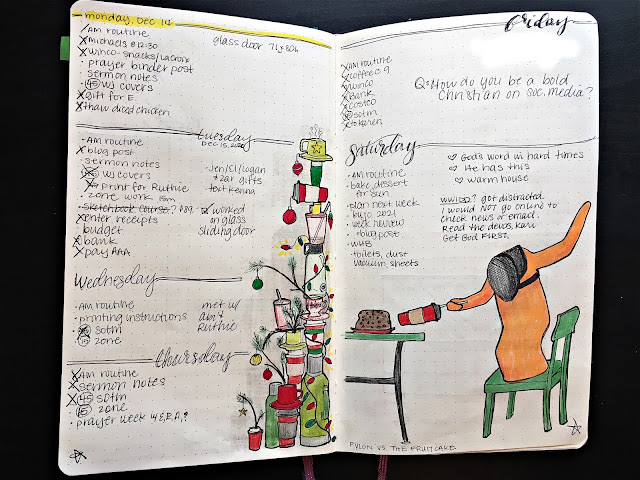 monday, Dec 14
AM routine
Michaels @ 12:30
glass door 71 x 80h
Winco-snacks/Lacroix
prayer binder post
sermon notes
WJ covers
gift for E.
thaw diced chicken
Tuesday
Dec 15, 2020
AM routine
blog post
sermon notes
WJ covers
print for Ruthie
zone work 15m
sketchbook course? $89
enter receipts
budget
bank
pay AAA
Jen/CL/Logan
gifts
text Kenna
worked
on glass
sliding door
Wednesday
AM routine
printing instructions
SOTM
15 zone
met w/
Ruthie
Thursday
AM routine
sermon notes
45 SOTM
15 zone
prayer week w/E,R,A,?
Friday
AM routine
coffee c 9
Winco
Bank
Costco
SOTM
to Karen
Q: How do you be a bold
Christian on soc. media?
Saturday
AM routine
bake, dessert
for sun
plan next week
bujo 2021
week review
blog post
WHB
toilets, dust
vacuum, sheets
God's word in hard times
He has this
warm house
WWIDD? got distracted.
I would NOT go online to
check news or email.
Read the devos, Kari
Get God FIRST.
PYLON VS. THE FRUITCAKE